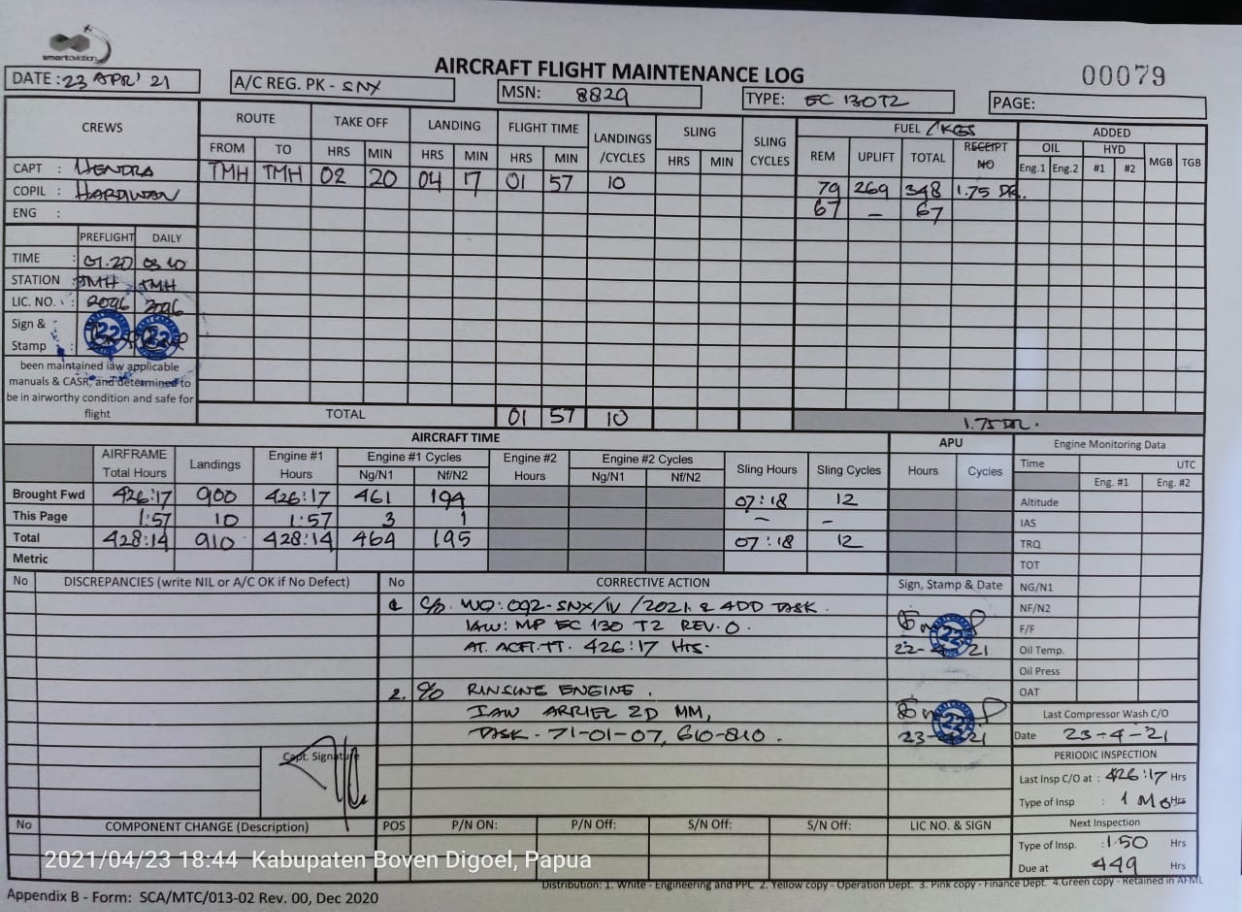 smartaviation
AIRCRAFT FLIGHT MAINTENANCE LOG
00079
DATE : 23 APR' 21
A/C REG. PK - SNX
MSN: 8829
TYPE: EC 130T2
PAGE:
CREWS ROUTE TAKE OFF LANDING FLIGHT TIME LANDINGS /CYCLES SLING SLING CYCLES FUEL / KGS ADDED
FROM TO HRS MIN HRS MIN HRS MIN HRS MIN REM UPLIFT TOTAL RECEIPT NO OIL HYD MGB TGB
Eng.1 Eng.2 #1 #2
CAPT : HENDRA TMH TMH 02 20 04 17 01 57 10 79 269 348 1.75 DR.
COPIL : HARDIWAN 67 – 67
ENG :
PREFLIGHT DAILY
TIME : 01.20 03 10
STATION : TMH TMH
LIC. NO. : 2096 2096
Sign &
Stamp : 22 22
been maintained iaw applicable
manuals & CASR, and determined to
be in airworthy condition and safe for
flight
TOTAL 01 57 10 1.75 DR.
AIRCRAFT TIME APU Engine Monitoring Data
AIRFRAME Total Hours Landings Engine #1 Hours Engine #1 Cycles Engine #2 Hours Engine #2 Cycles Sling Hours Sling Cycles Hours Cycles Time UTC
Ng/N1 Nf/N2 Ng/N1 Nf/N2 Eng. #1 Eng. #2
Brought Fwd 426:17 900 426:17 461 194 07:18 12 Altitude
This Page 1:57 10 1:57 3 1 – – IAS
Total 428:14 910 428:14 464 195 07:18 12 TRQ
Metric TOT
No DISCREPANCIES (write NIL or A/C OK if No Defect) No CORRECTIVE ACTION Sign, Stamp & Date NG/N1
1 C/O. WO: 092-SNX/IV /2021. & ADD TASK. NF/N2
IAW: MP EC 130 T2 REV. 0. 22 F/F
AT. ACFT.TT. 426:17 HRS. 22-4-21 Oil Temp.
Oil Press
2. C/O RINSING ENGINE. OAT
IAW ARRIEL 2D MM, 22 Last Compressor Wash C/O
TASK. 71-01-07, 610-810. 23-4-21 Date 23-4-'21
Capt. Signature
PERIODIC INSPECTION
Last Insp C/O at : 426:17 Hrs
Type of Insp : 1 Mo Hrs
No COMPONENT CHANGE (Description) POS P/N ON: P/N Off: S/N Off: S/N Off: LIC NO. & SIGN Next Inspection
Type of Insp. : 150 Hrs
Due at 449 Hrs
2021/04/23 18:44 Kabupaten Boven Digoel, Papua
Distribution: 1. White - Engineering and PPC 2. Yellow copy - Operation Dept. 3. Pink copy - Finance Dept. 4.Green copy - Retained in AFML
Appendix B - Form: SCA/MTC/013-02 Rev. 00, Dec 2020